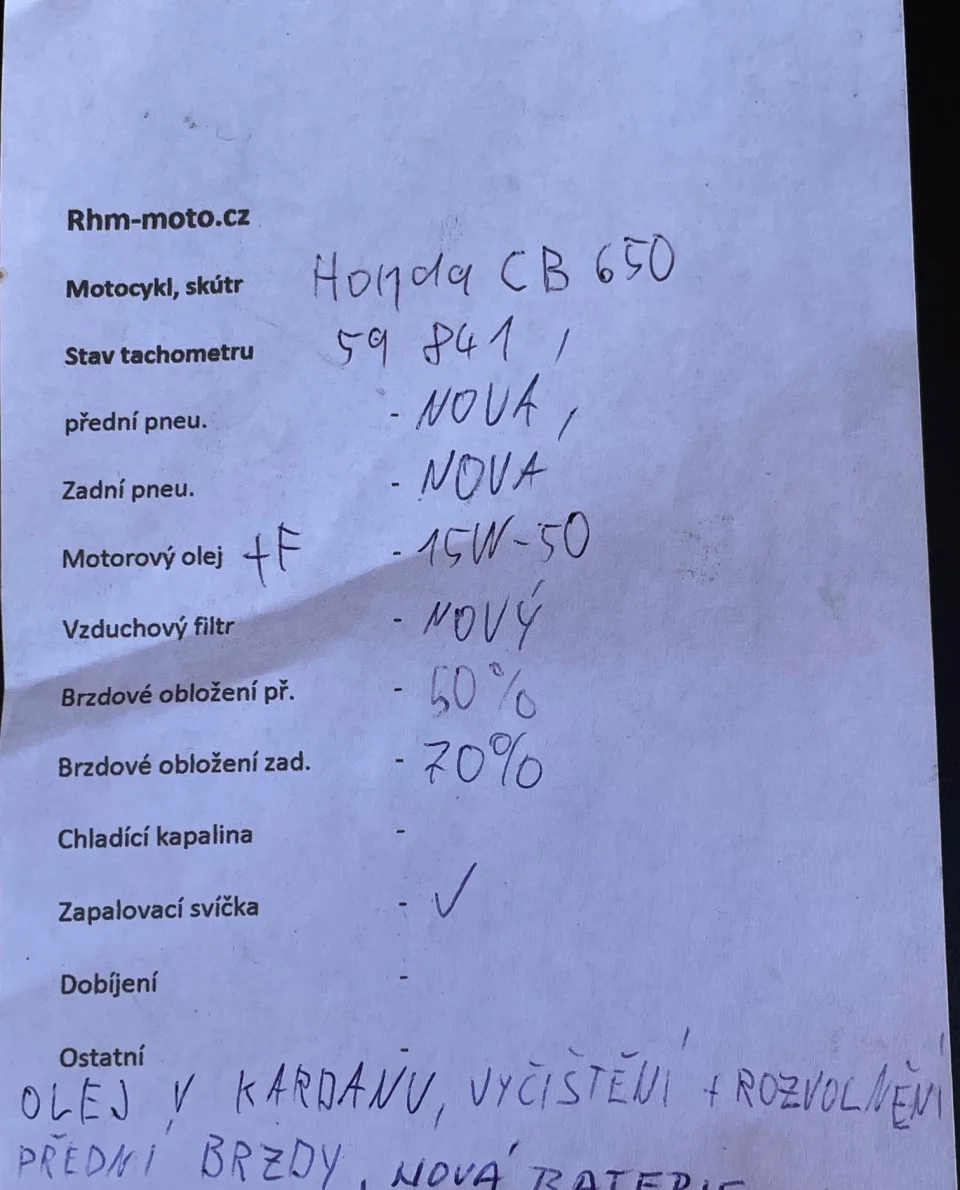 Rhm-moto.cz
Motocykl, skútr Honda CB 650
Stav tachometru 59 841,
přední pneu. - NOVA,
Zadní pneu. - NOVA
Motorový olej +F - 15W-50
Vzduchový filtr - NOVÝ
Brzdové obložení př. - 50%
Brzdové obložení zad. - 70%
Chladící kapalina -
Zapalovací svíčka - ✓
Dobíjení -
Ostatní -
OLEJ V KARDANU, VYČIŠTĚNÍ + ROZVOLNĚNÍ
PŘEDNÍ BRZDY, NOVÁ BATERIE